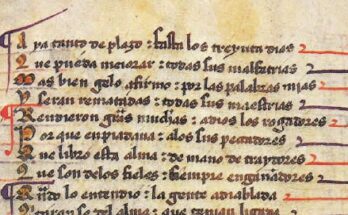 Aya tanto de plazo : fasta los treynta dias
Que pueda meiorar : todas sus malfetrias
Mas bien gelo afirmo : por las palabras mias
Y seran rematadas : todas sus maestrias
Rendieron gracias muchas : a dios los rogadores
Por que en piadaua : a los sus pecadores
Que libro esta alma : de mano de traydores
Que son delos fieles : siempre engannadores
Quando lo entendio : la gente adiablada
tal alma : que tenian ligada